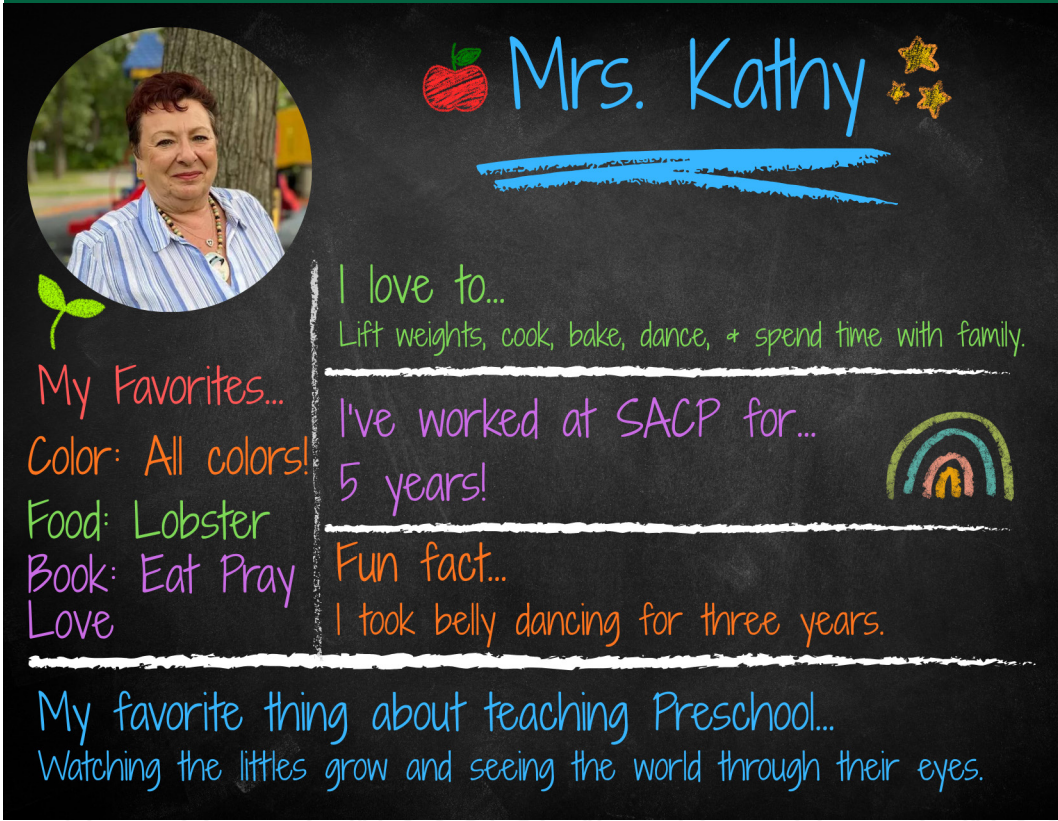 Mrs. Kathy
My Favorites...
Color: All colors!
Food: Lobster
Book: Eat Pray
Love
I love to...
Lift weights, cook, bake, dance, & spend time with family.
I've worked at SACP for...
5 years!
Fun fact...
I took belly dancing for three years.
My favorite thing about teaching Preschool...
Watching the littles grow and seeing the world through their eyes.